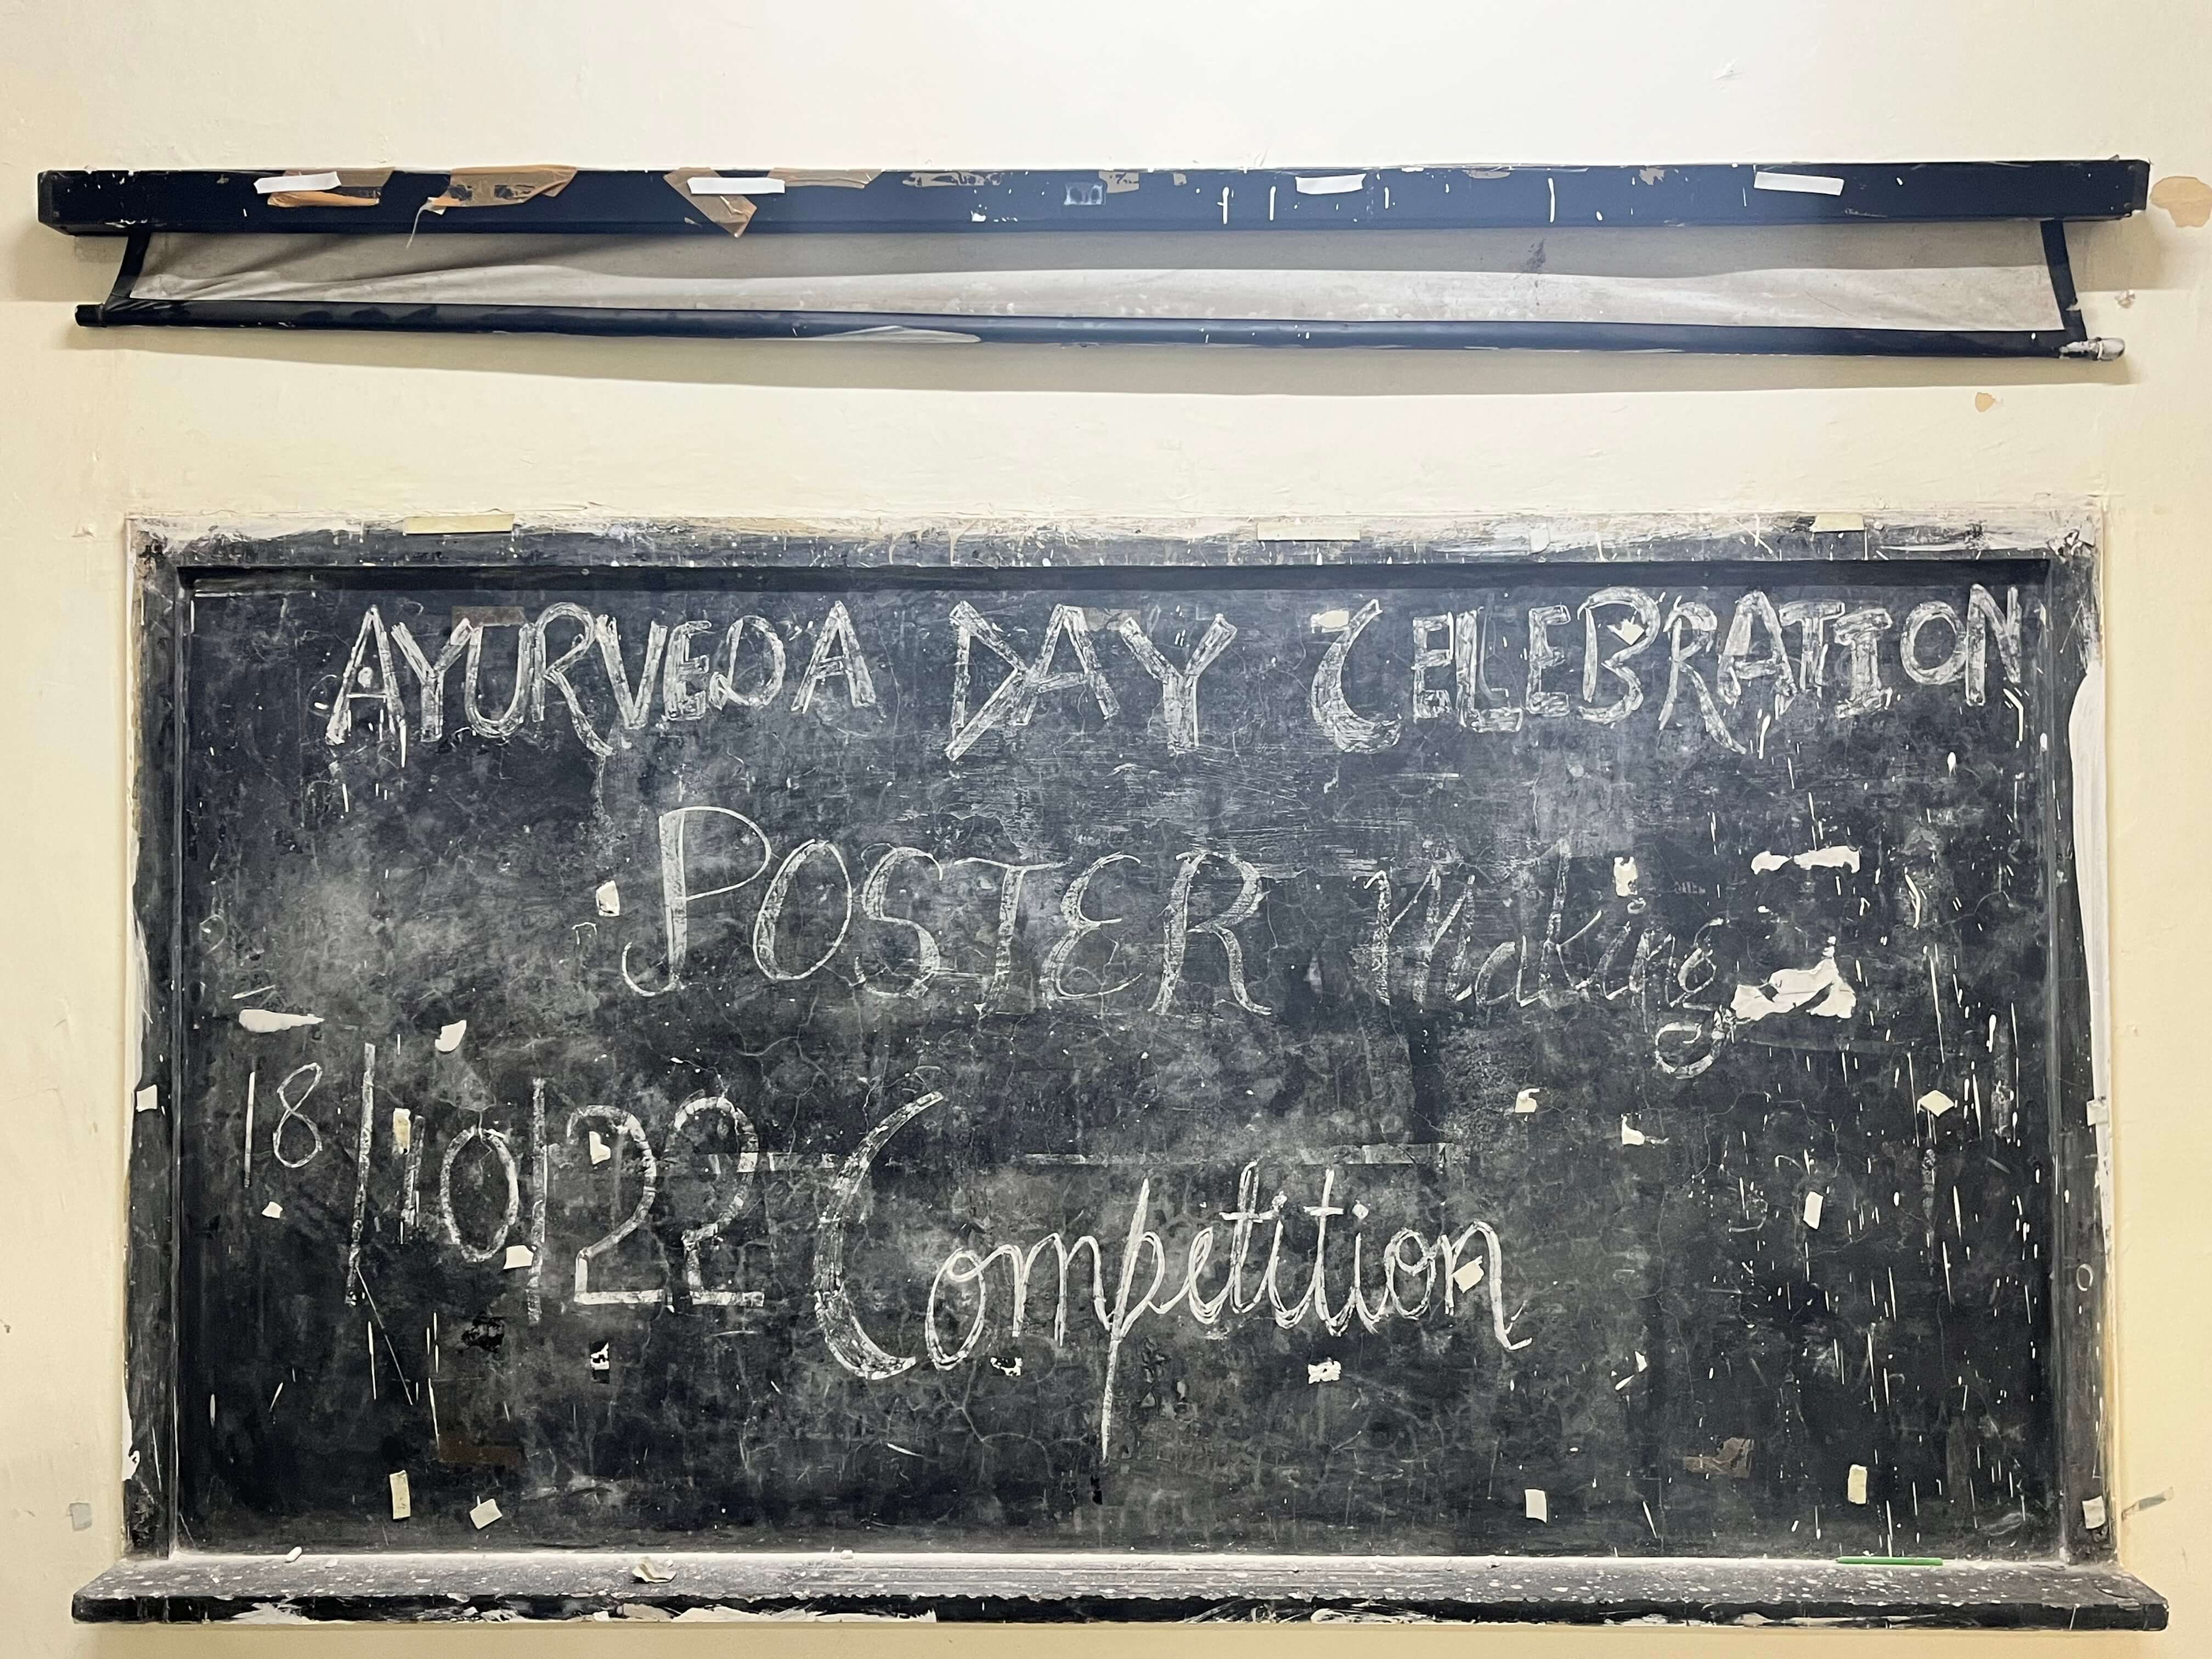 AYURVEDA DAY CELEBRATION
POSTER Making
18/10/22 Competition